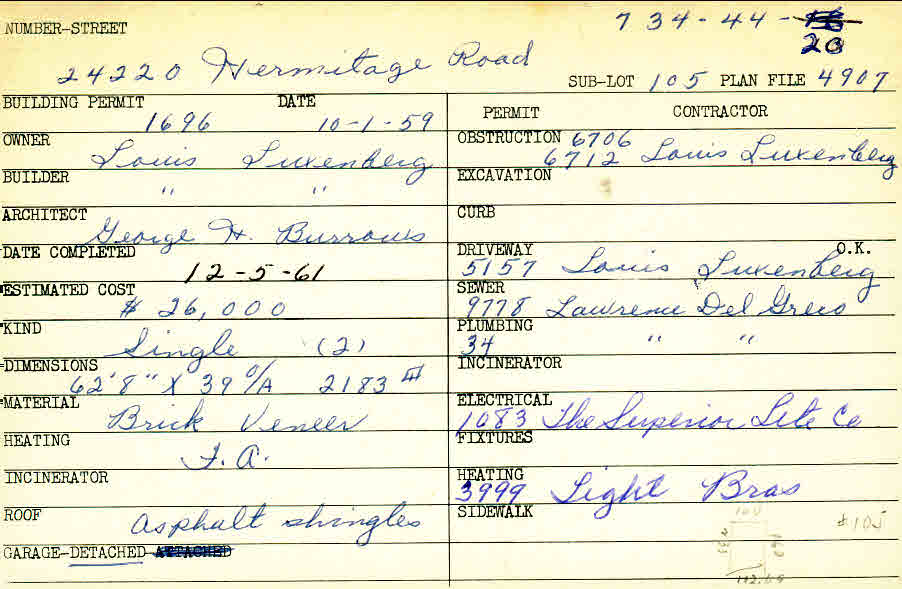 NUMBER-STREET 734-44-
20
24220 Hermitage Road
SUB-LOT 105 PLAN FILE 4907
BUILDING PERMIT DATE
1696 10-1-59
OWNER
Louis Luxenberg
BUILDER
" "
ARCHITECT
George H. Burrows
DATE COMPLETED
12-5-61
ESTIMATED COST
$ 26,000
KIND
Single (2)
DIMENSIONS
62'8" X 39 O/A 2183
MATERIAL
Brick Veneer
HEATING
F.A.
INCINERATOR
ROOF
asphalt shingles
GARAGE-DETACHED ATTACHED
PERMIT CONTRACTOR
OBSTRUCTION 6706
6712 Louis Luxenberg
EXCAVATION
CURB
DRIVEWAY O.K.
5157 Louis Luxenberg
SEWER
9778 Lawrence Del Greco
PLUMBING
34 " "
INCINERATOR
ELECTRICAL
1083 The Superior Lite Co
FIXTURES
HEATING
3999 Light Bros
SIDEWALK
#105